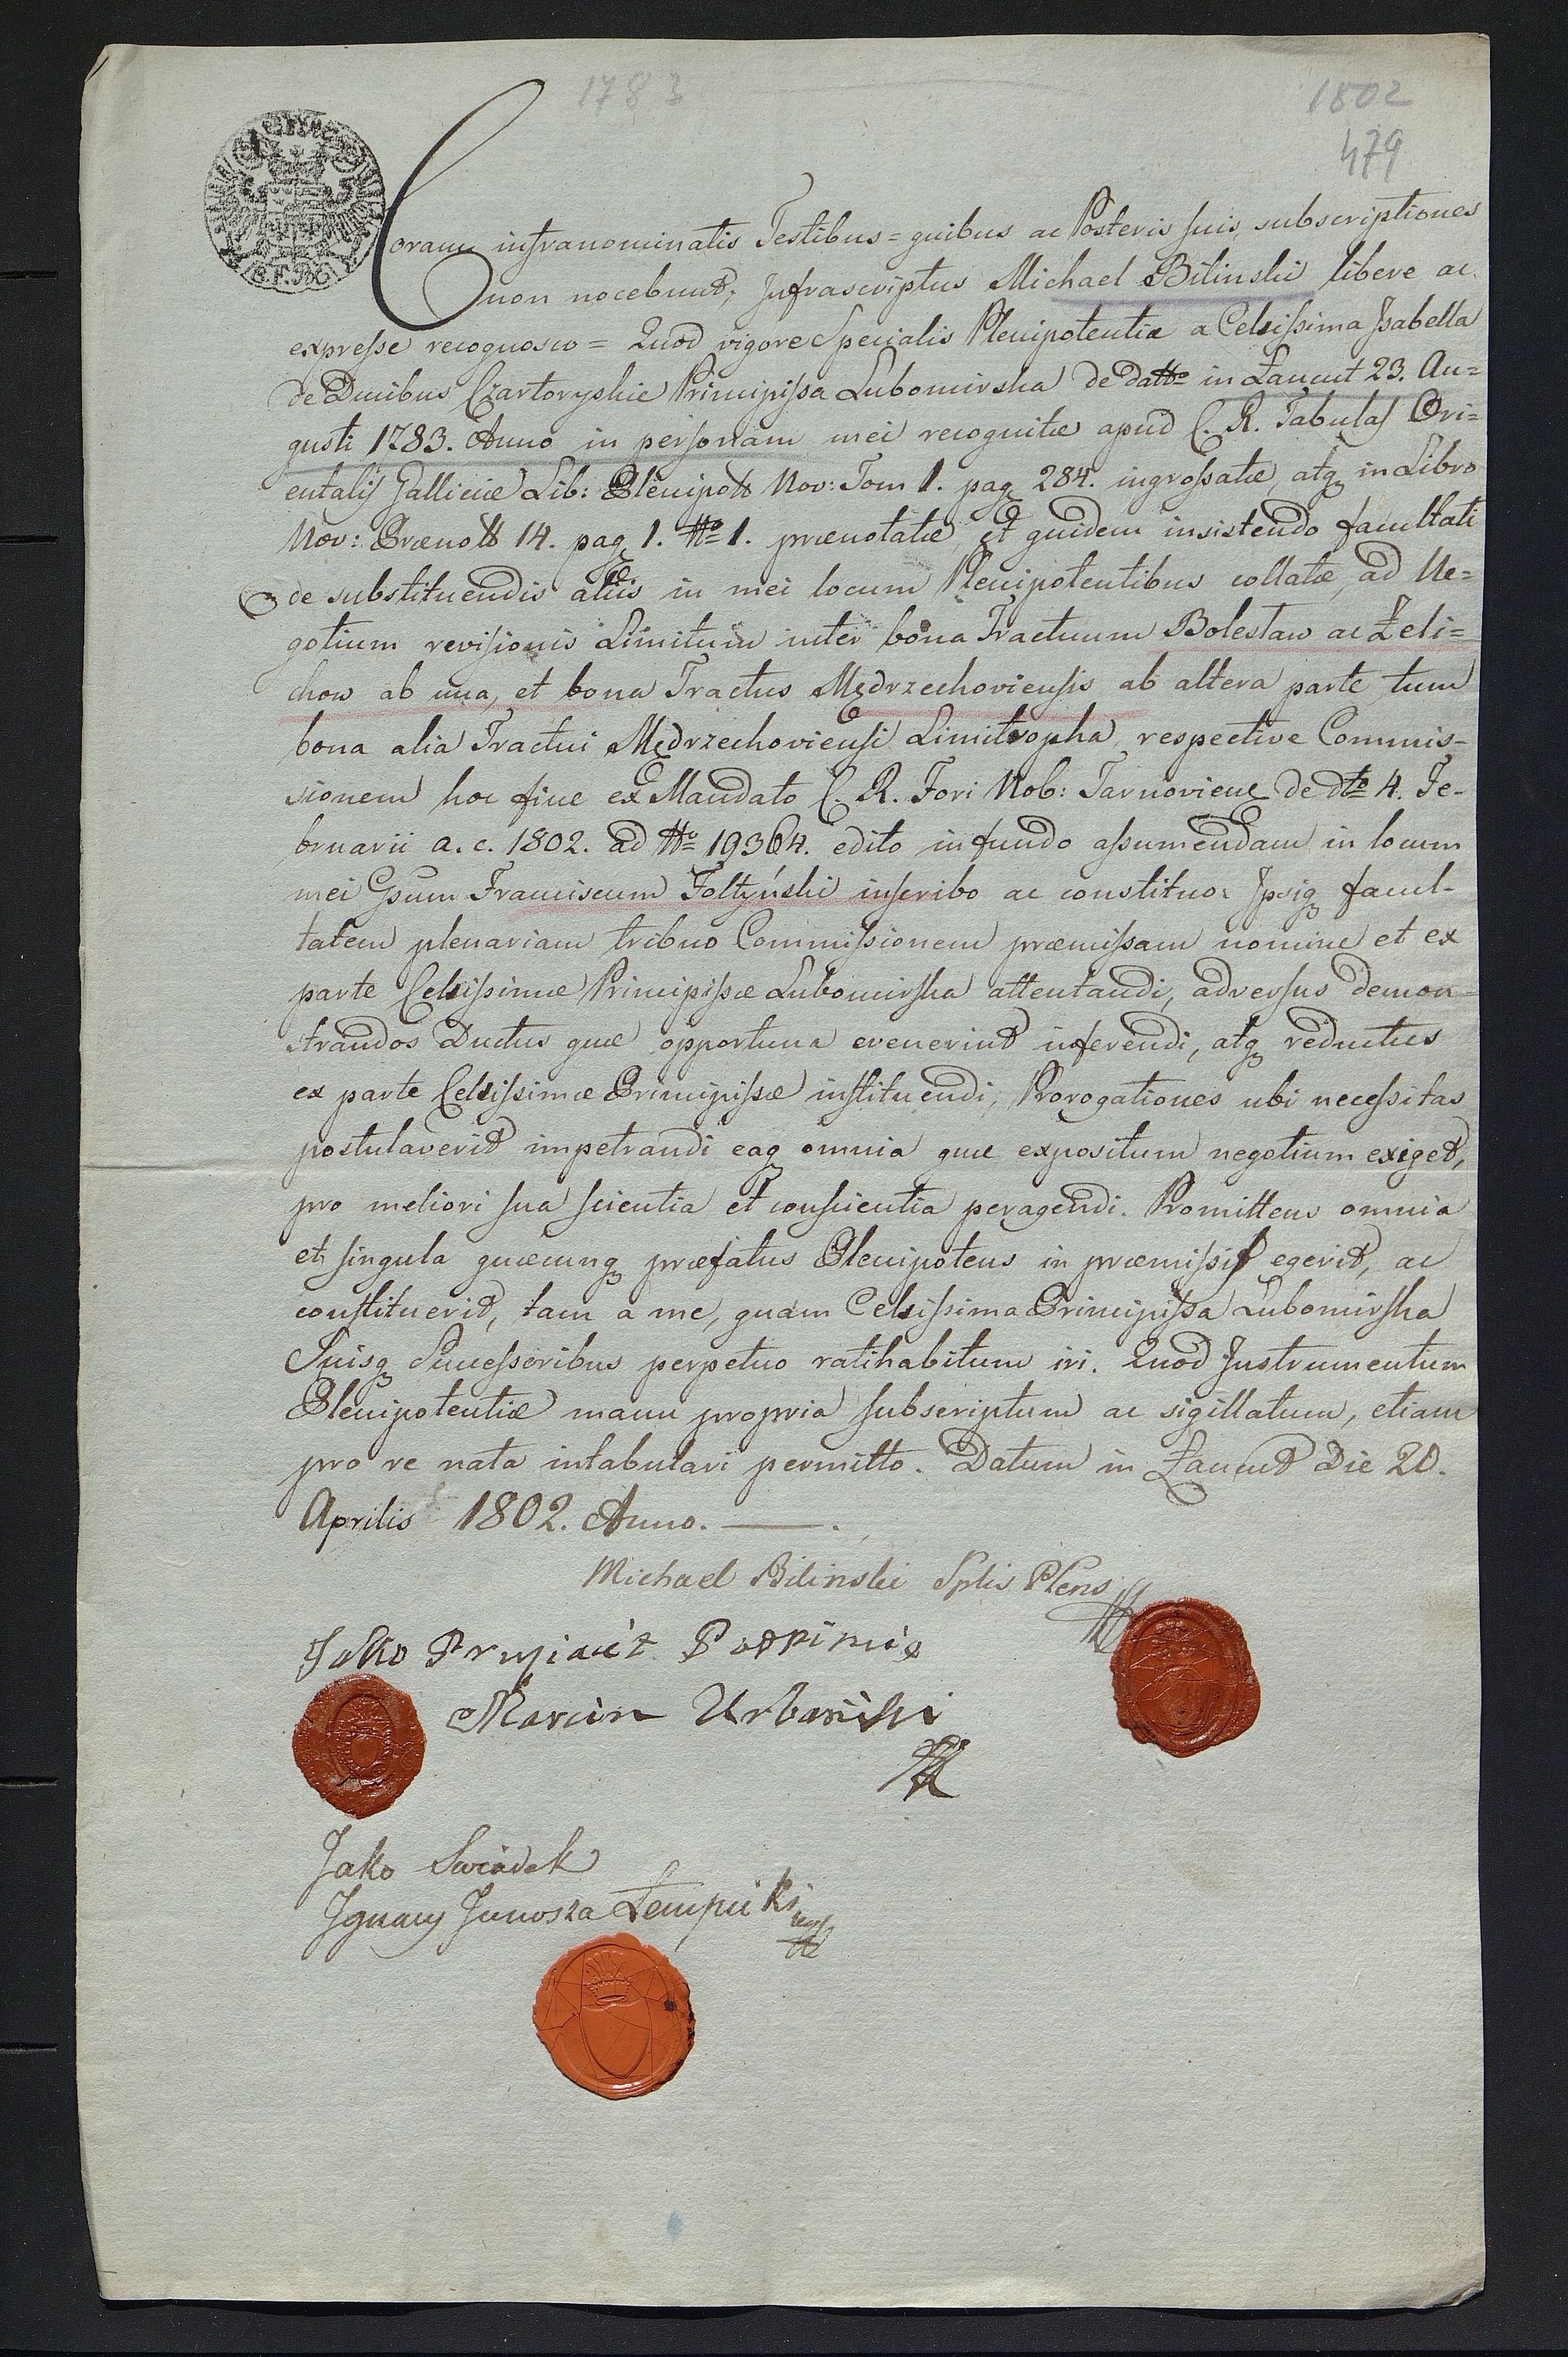 1783
1802
479
Coram infranominatis Testibus = quibus ac Posteris suis, subscriptiones
non nocebunt, Infrascriptus Michael Bilinski libere ac
expresse recognosco = Quod vigore Specialis Plenipotentiæ a Celsissima Isabella
de Ducibus Czartoryskie Principissa Lubomirska de datto in Łancut 23. Au=
gusti 1783. Anno in personam mei recognitæ apud C. R. Tabulas Ori=
entalis Galliciæ Lib: Plenipott Nov: Tom 1. pag 284. ingrossatæ, atq in Libro
Nov: Prænott 14. pag 1. No 1. prænotatæ, et quidem insistendo facultati
de substituendis aliis in mei locum Plenipotentibus collatæ, ad Ne=
gotium revisionis Limitum inter bona Tractuum Bolesław ac Żeli=
chow ab una, et bona Tractus Mędrzechoviensis ab altera parte tum
bona alia Tractui Mędrzechoviensi Limitropha, respective Commis-
sionem hoc fine ex Mandato C. R. Fori Nob: Tarnovien de dto 4. Fe-
bruarii a. c. 1802. ad No 19364. edito in fundo assumendam in locum
mei Gsum Franciscum Foltyński inscribo ac constituo. Ipsiq facul-
tatem plenariam tribuo Commissionem præmissam nomine et ex
parte Celsissimæ Principissæ Lubomirska attentandi, adversus demon=
strandos Ductus quæ opportuna evenerint inferendi, atq reductus
ex parte Celsissimæ Principissæ instituendi, Prorogationes ubi necessitas
postulaverit impetrandi eaq omnia quæ expositum negotium exiget,
pro meliori sua scientia et conscientia peragendi. Promittens omnia
et singula quæcunq præfatus Plenipotens in præmissis egerit, ac
constituerit, tam a me, quam Celsissima Principissa Lubomirska
Suisq Successoribus perpetuo ratihabitum iri. Quod Instrumentum
Plenipotentiæ manu propria subscriptum ac sigillatum, etiam
pro re nata intabulari permitto. Datum in Łancut die 20.
Aprilis 1802. Anno. —
Michael Bilinski Splis Plens
Jako Przyiaciel Podpinie
Marcin Urbański
Jako Swiadek
Ignacy Junosza Łempicki